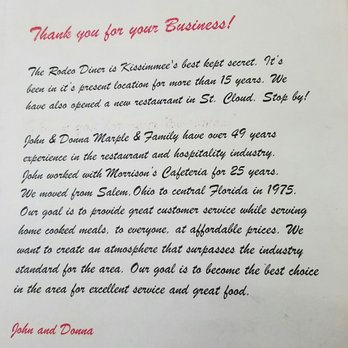 Thank you for your Business!
The Rodeo Diner is Kissimmee's best kept secret. It's
been in it's present location for more than 15 years. We
have also opened a new restaurant in St. Cloud. Stop by!
John & Donna Marple & Family have over 49 years
experience in the restaurant and hospitality industry.
John worked with Morrison's Cafeteria for 25 years.
We moved from Salem, Ohio to central Florida in 1975.
Our goal is to provide great customer service while serving
home cooked meals, to everyone, at affordable prices. We
want to create an atmosphere that surpasses the industry
standard for the area. Our goal is to become the best choice
in the area for excellent service and great food.
John and Donna